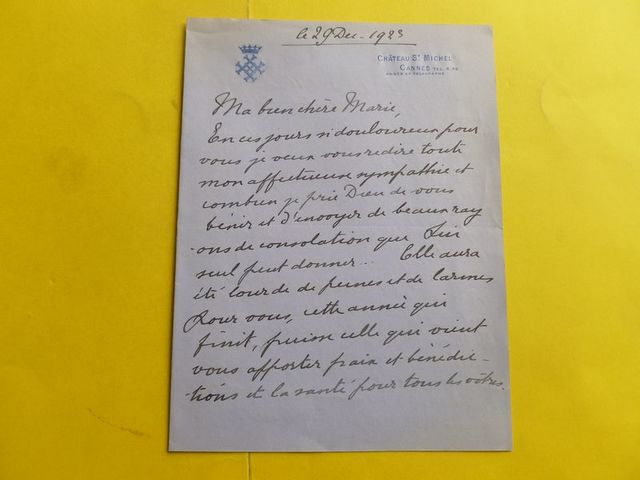 le 29 Dec - 1923
CHÂTEAU St MICHEL
CANNES TEL. 6.46
Ma bien chère Marie,
En ces jours si douloureux pour
vous je veux vous redire toute
mon affectueuse sympathie et
combien je prie Dieu de vous
bénir et d'envoyer de beaux ray
-ons de consolation que Lui
seul peut donner... Elle aura
été lourde de peines et de larmes
pour vous, cette année qui
finit, puisse celle qui vient
vous apporter paix et bénédic-
-tions et la santé pour tous les vôtres.